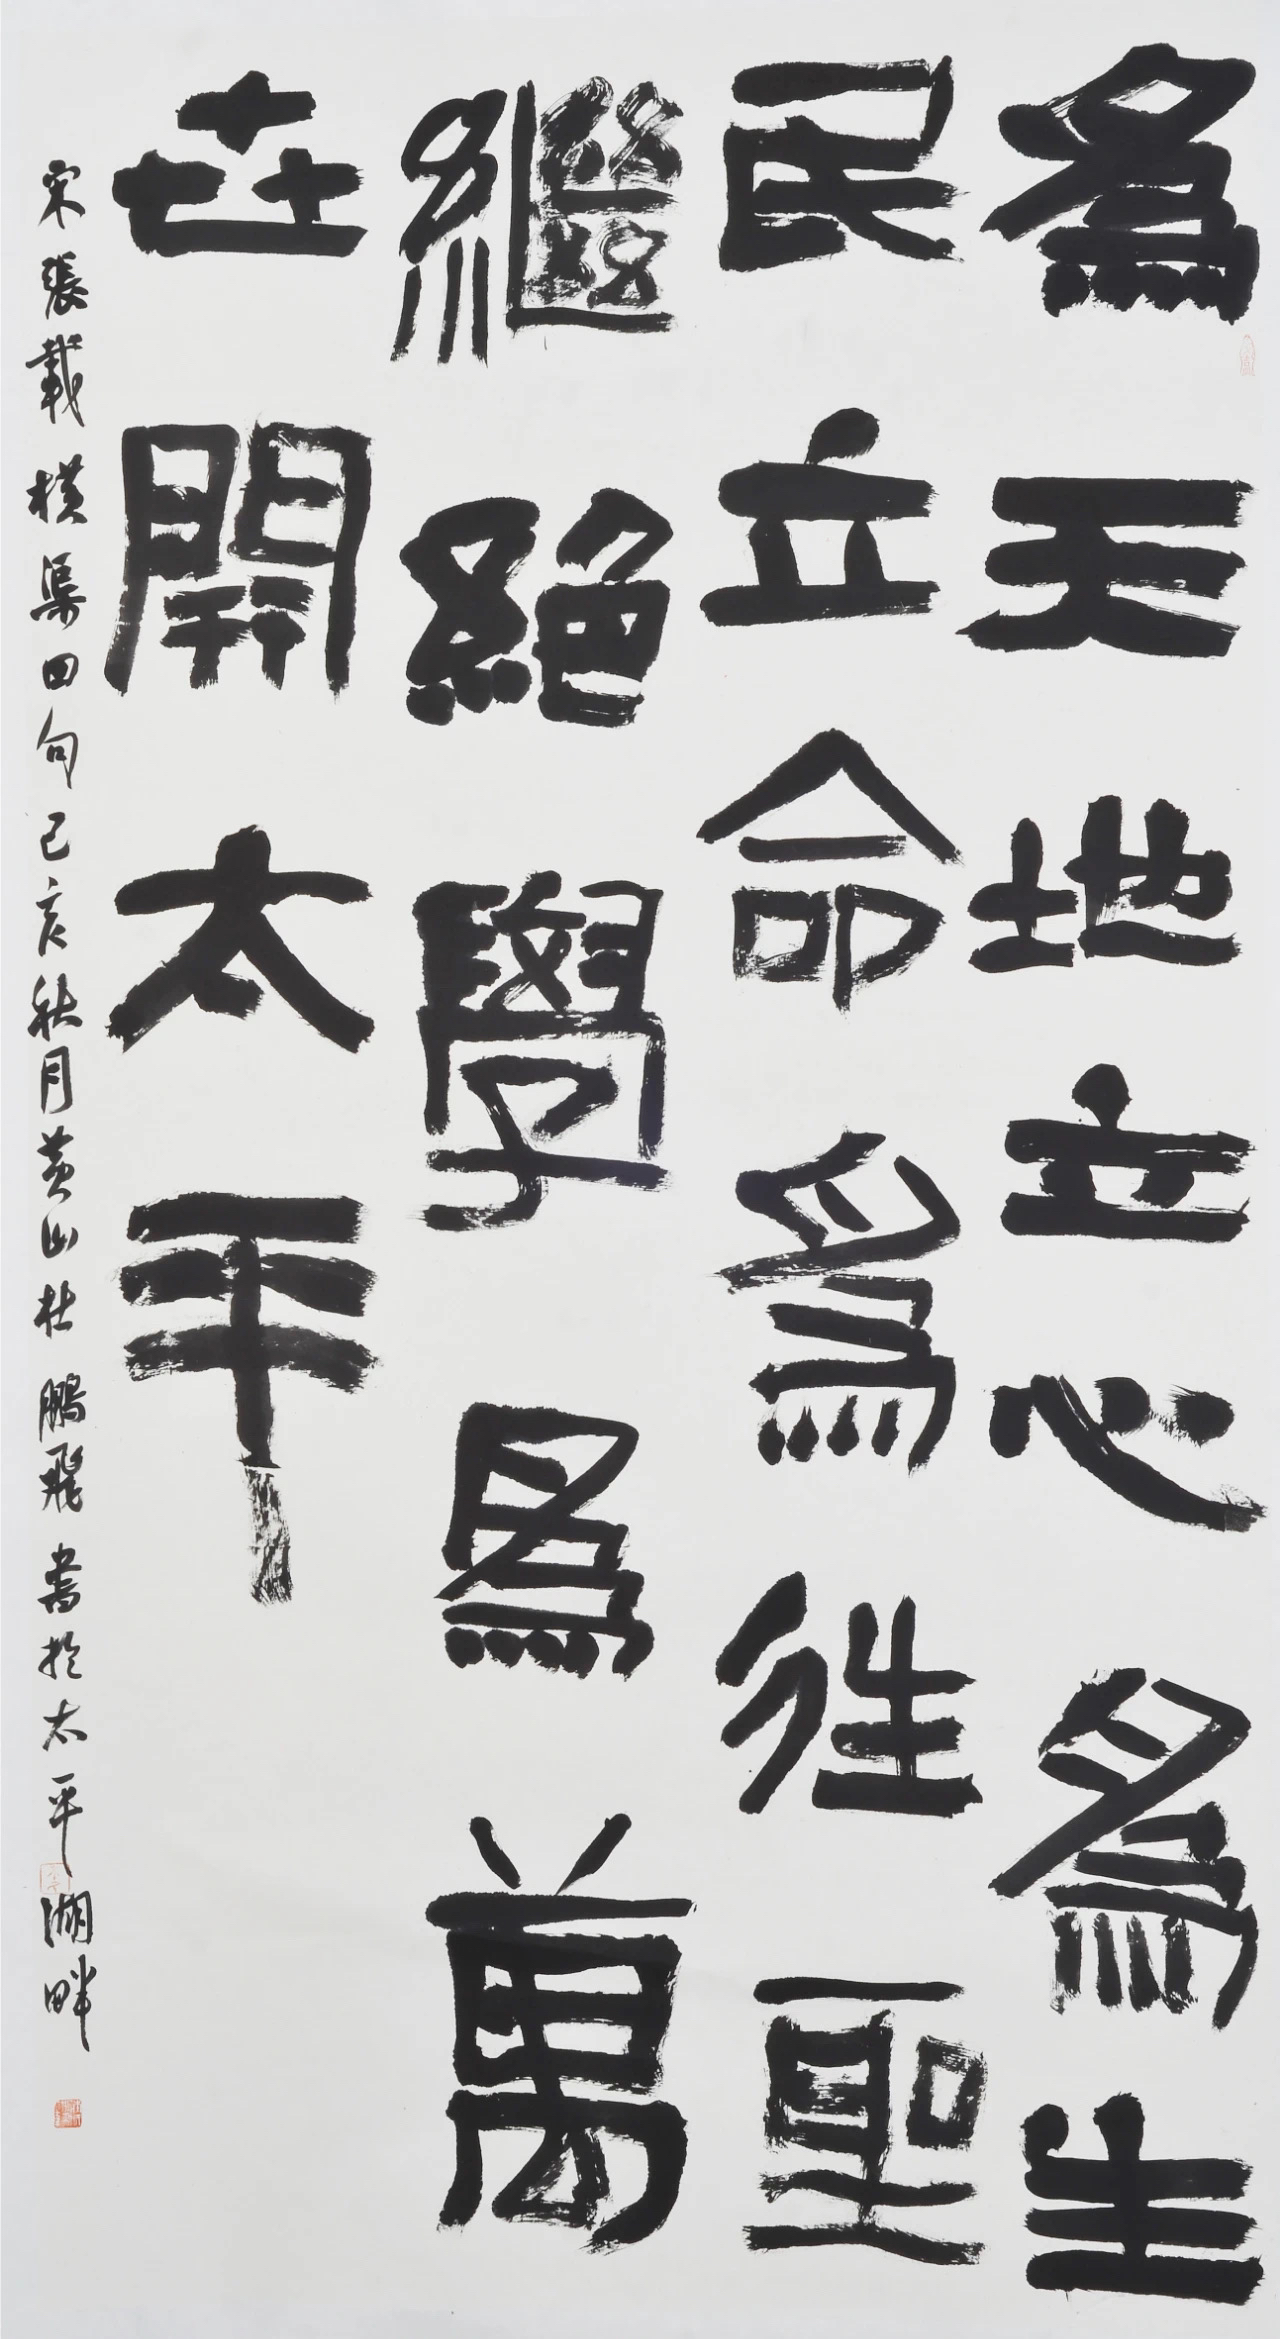 為天地立心為生
民立命為往聖
繼絕學為萬
世開太平
宋張載橫渠四句己亥秋月黃山杜鵬飛書於太平湖畔